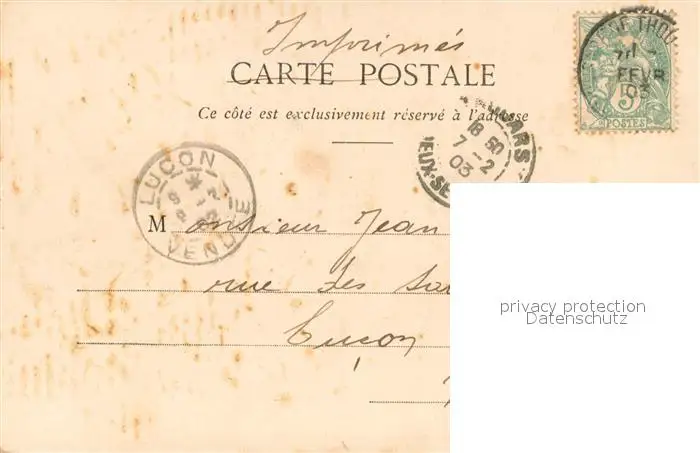 Imprimés
CARTE POSTALE
Ce côté est exclusivement réservé à l'adresse
THOU
FEVR
03
5
POSTES
18 50
7-2
03
LUÇON
VENDÉE
Monsieur Jean
rue des
Luçon
privacy protection
Datenschutz